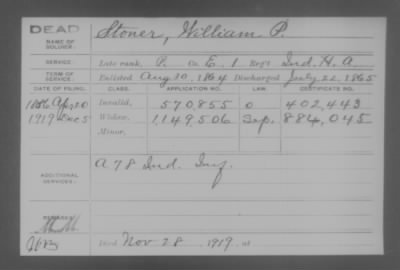 DEAD
NAME OF SOLDIER:
Stoner, William P.
SERVICE:
Late rank, P. Co. E, 1 Reg't Ind. H. A.
TERM OF SERVICE:
Enlisted Aug 10, 1864 Discharged July 22, 1865
DATE OF FILING. CLASS. APPLICATION NO. LAW. CERTIFICATE NO.
1886 Apr 20 Invalid, 570855 402,443
1919 Dec 5 Widow, 1,149,506 884,045
Minor,
ADDITIONAL SERVICES:
A 78 Ind. Inf.
REMARKS:
Died Nov 28 1919, at